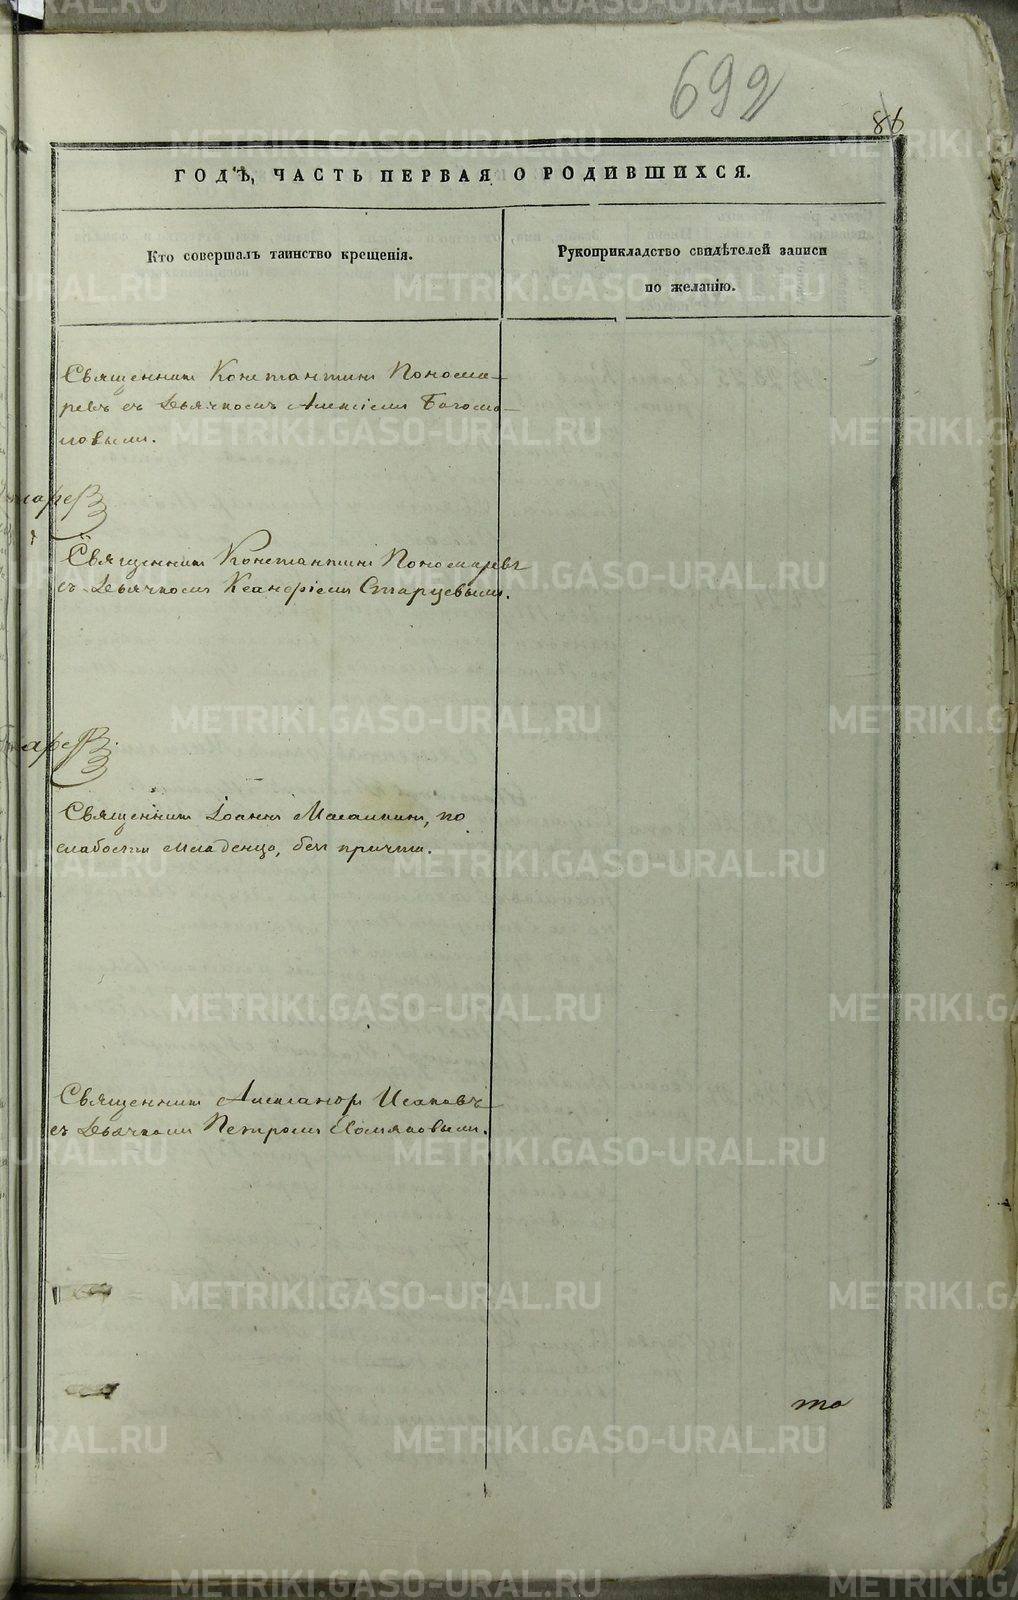 692
86
ГОДѢ, ЧАСТЬ ПЕРВАЯ О РОДИВШИХСЯ.
Кто совершалъ таинство крещенія.
Рукоприкладство свидѣтелей записи
по желанію.
Священникъ Константинъ Понома-
ревъ съ Дьячкомъ Алексіемъ Богомо-
ловымъ.
Священникъ Константинъ Пономаревъ
съ Дьячкомъ Ксанѳіемъ Старцевымъ.
Священникъ Іоаннъ Масалкинъ, по
слабости младенца, безъ причта.
Священникъ Александръ Исаковъ
съ Дьячкомъ Петромъ Хомяковымъ.
то
METRIKI.GASO-URAL.RU